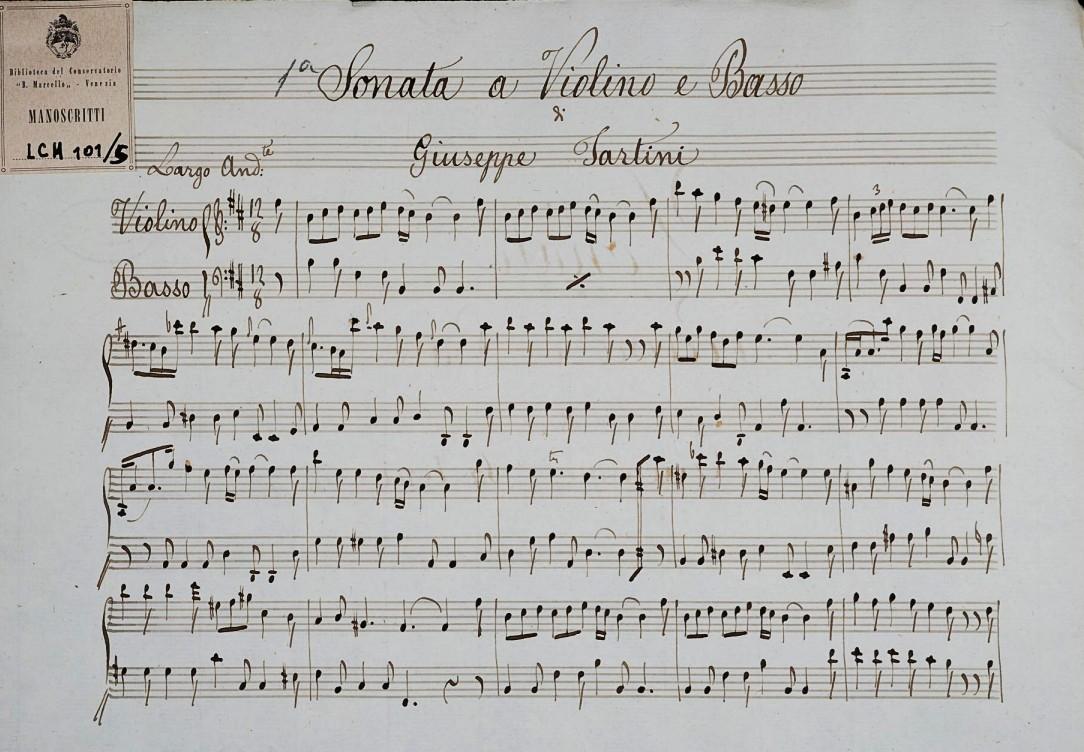 Biblioteca del Conservatorio
"B. Marcello„ - Venezia
MANOSCRITTI
LCM 101/5
1a Sonata a Violino e Basso
di
Giuseppe Tartini
Largo And:te
Violino
12
8
3
Basso
12
8
tr